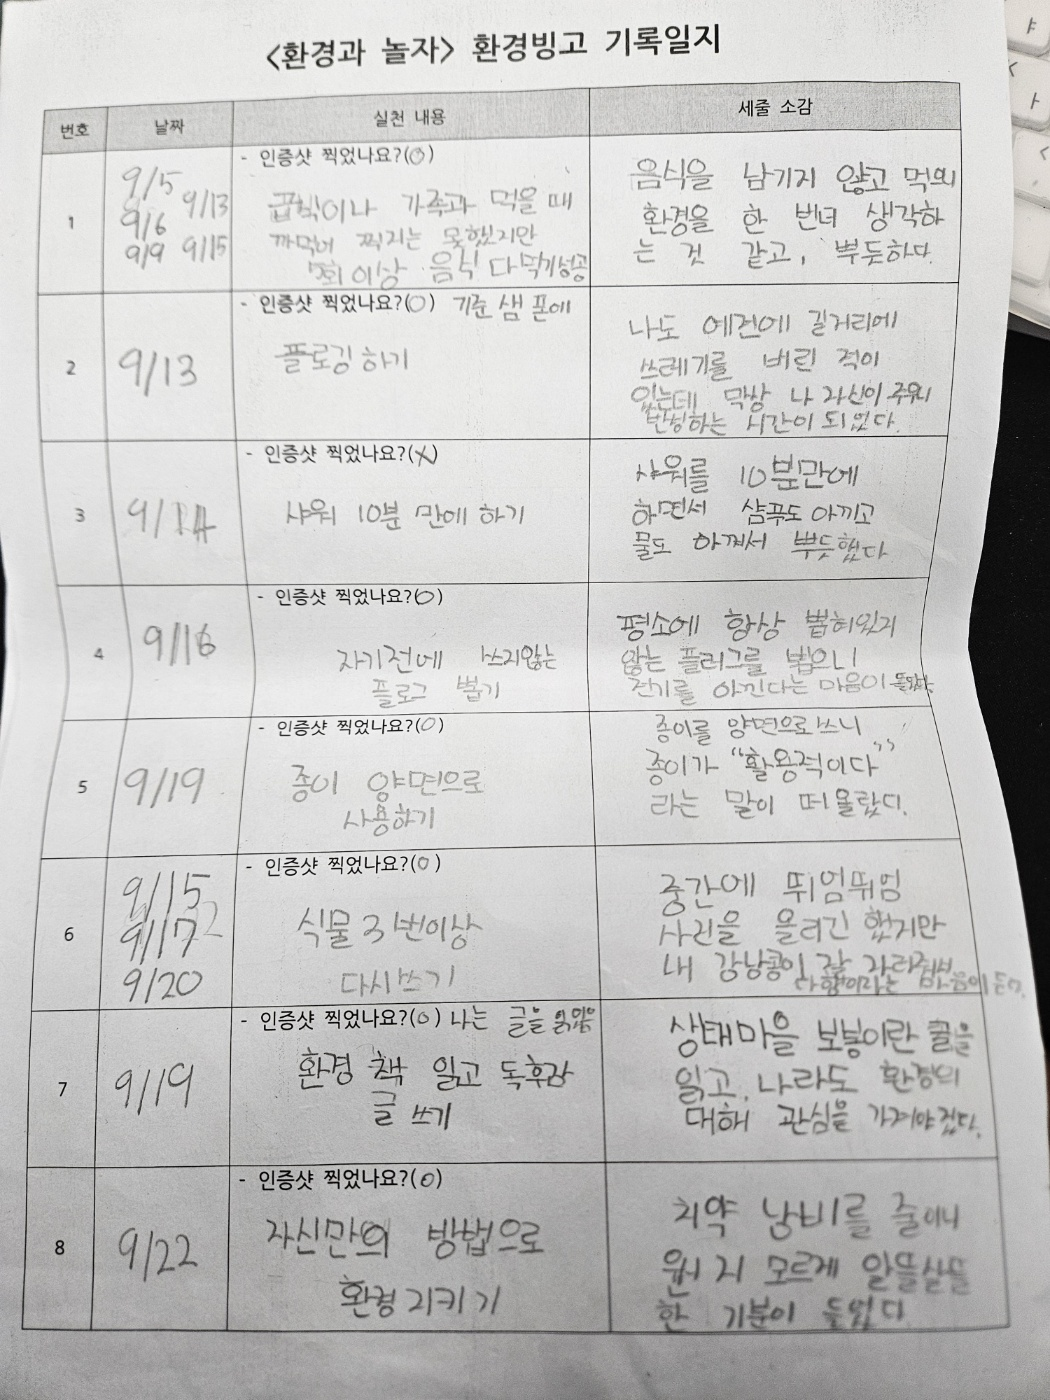 <환경과 놀자> 환경빙고 기록일지
번호 날짜 실천 내용 세줄 소감
1
9/5
9/6 9/13
9/9 9/15
- 인증샷 찍었나요?(O)
급식이나 가족과 먹을 때
까먹어 찍지는 못했지만
5회 이상 음식 다먹기성공
음식을 남기지 않고 먹으니
환경을 한 번더 생각하
는 것 같고, 뿌듯하다.
2
9/13
- 인증샷 찍었나요?(O) 기준 샘 폰에
플로깅 하기
나도 예전에 길거리에
쓰레기를 버린 적이
있는데 막상 나 자신이 주우니
반성하는 시간이 되었다.
3
9/14
- 인증샷 찍었나요?(X)
샤워 10분 만에 하기
샤워를 10분만에
하면서 샴푸도 아끼고
물도 아껴서 뿌듯했다
4
9/16
- 인증샷 찍었나요?(O)
자기전에 쓰지않는
플로그 뽑기
평소에 항상 뽑혀있지
않는 플러그를 뽑으니
전기를 아낀다는 마음이 들었다
5
9/19
- 인증샷 찍었나요?(O)
종이 양면으로
사용하기
종이를 양면으로 쓰니
종이가 "활용적이다"
라는 말이 떠올랐다.
6
9/15
9/17
9/20
- 인증샷 찍었나요?(O)
식물 3번이상
다시쓰기
중간에 뛰엄뛰엄
사진을 올리긴 했지만
내 강낭콩이 잘 자라줘서
다행이라는 마음이 든다.
7
9/19
- 인증샷 찍었나요?(O) 나는 글을 읽었음
환경 책 읽고 독후감
글 쓰기
상태마을 보봉이란 글을
읽고, 나라도 환경의
대해 관심을 가져야겠다.
8
9/22
- 인증샷 찍었나요?(O)
자신만의 방법으로
환경 지키기
치약 낭비를 줄이니
원지 모르게 알뜰살뜰
한 기분이 들었다